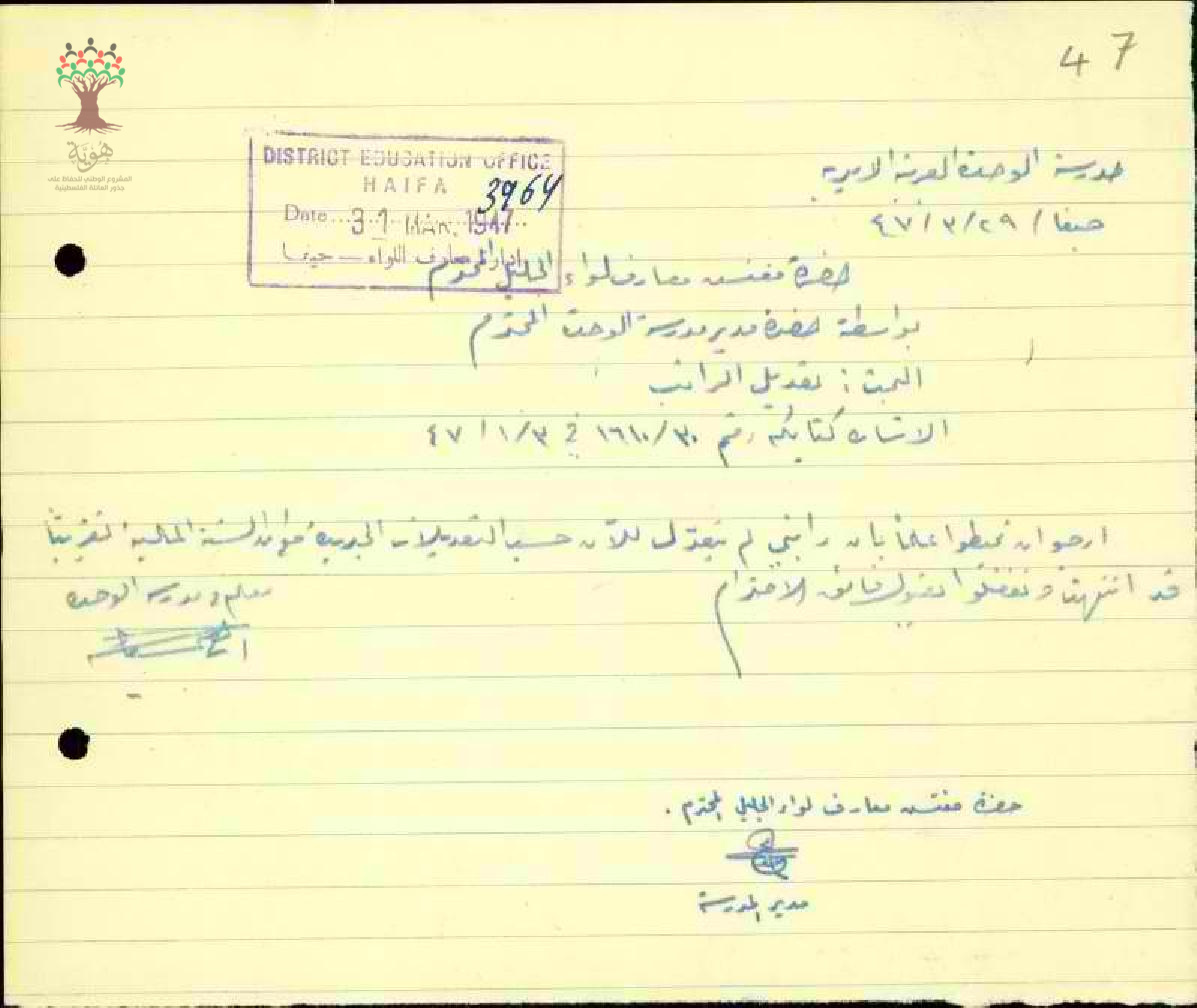 47
هوية
المشروع الوطني للحفاظ على
جذور العائلة الفلسطينية
DISTRICT EDUCATION OFFICE
HAIFA
3964
Date 31 MAR. 1947
معارف اللواء — حيفا
مدرسة الوحدة العربية الاميرية
حيفا / ٢٩/٣/٤٧
حضرة مفتش معارف لواء الجليل المحترم
بواسطة حضرة مدير مدرسة الوحدة المحترم
البحث : تعديل الراتب
الاشارة كتابكم رقم ١٦١٠/٣٠ في ٣/١/٤٧
ارجو ان تحيطوا علماً بان راتبي لم يتعدّل للآن حسب التعديلات الجديدة السنة المالية تقريباً
قد انتهت وتفضلوا بقبول فائق الاحترام
معلم في مدرسة الوحدة
حضرة مفتش معارف لواء الجليل المحترم .
مدير المدرسة